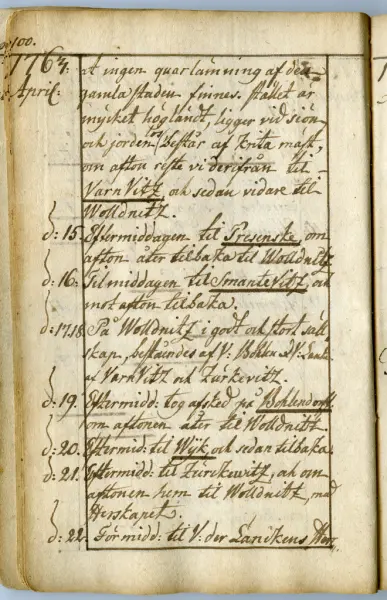 100.
1767. at ingen quarlämning af den
April: gamla staden finnes. stället är
mycket högländt, ligger vid siön
och jorden består af Krita mäst,
om afton reste vi derifrån til
VarnVitz och sedan vidare til
Wolldnitz.
d: 15. Eftermiddagen til Presenske om
afton åter tilbaka til Wolldnitz
d: 16. Til middagen til SmanteVitz, och
mot afton tilbaka.
d: 17.18. På Wolldnitz i godt och stort säll
skap, bestäendes af V: Bohlen V: Lank:
af VarnVitz och Zürkevitz.
d: 19. Eftermidd: tog afsted på Bohlendorff
om aftonen åter til Wolldnitz.
d: 20. Eftermid: til Wÿk och sedan tilbaka.
d: 21. Eftermid: til Zürckewitz, och om
aftonen hem til Wolldnitz, med
Herskapet.
d: 22. Förmidd: til V: der Lanckens Herr